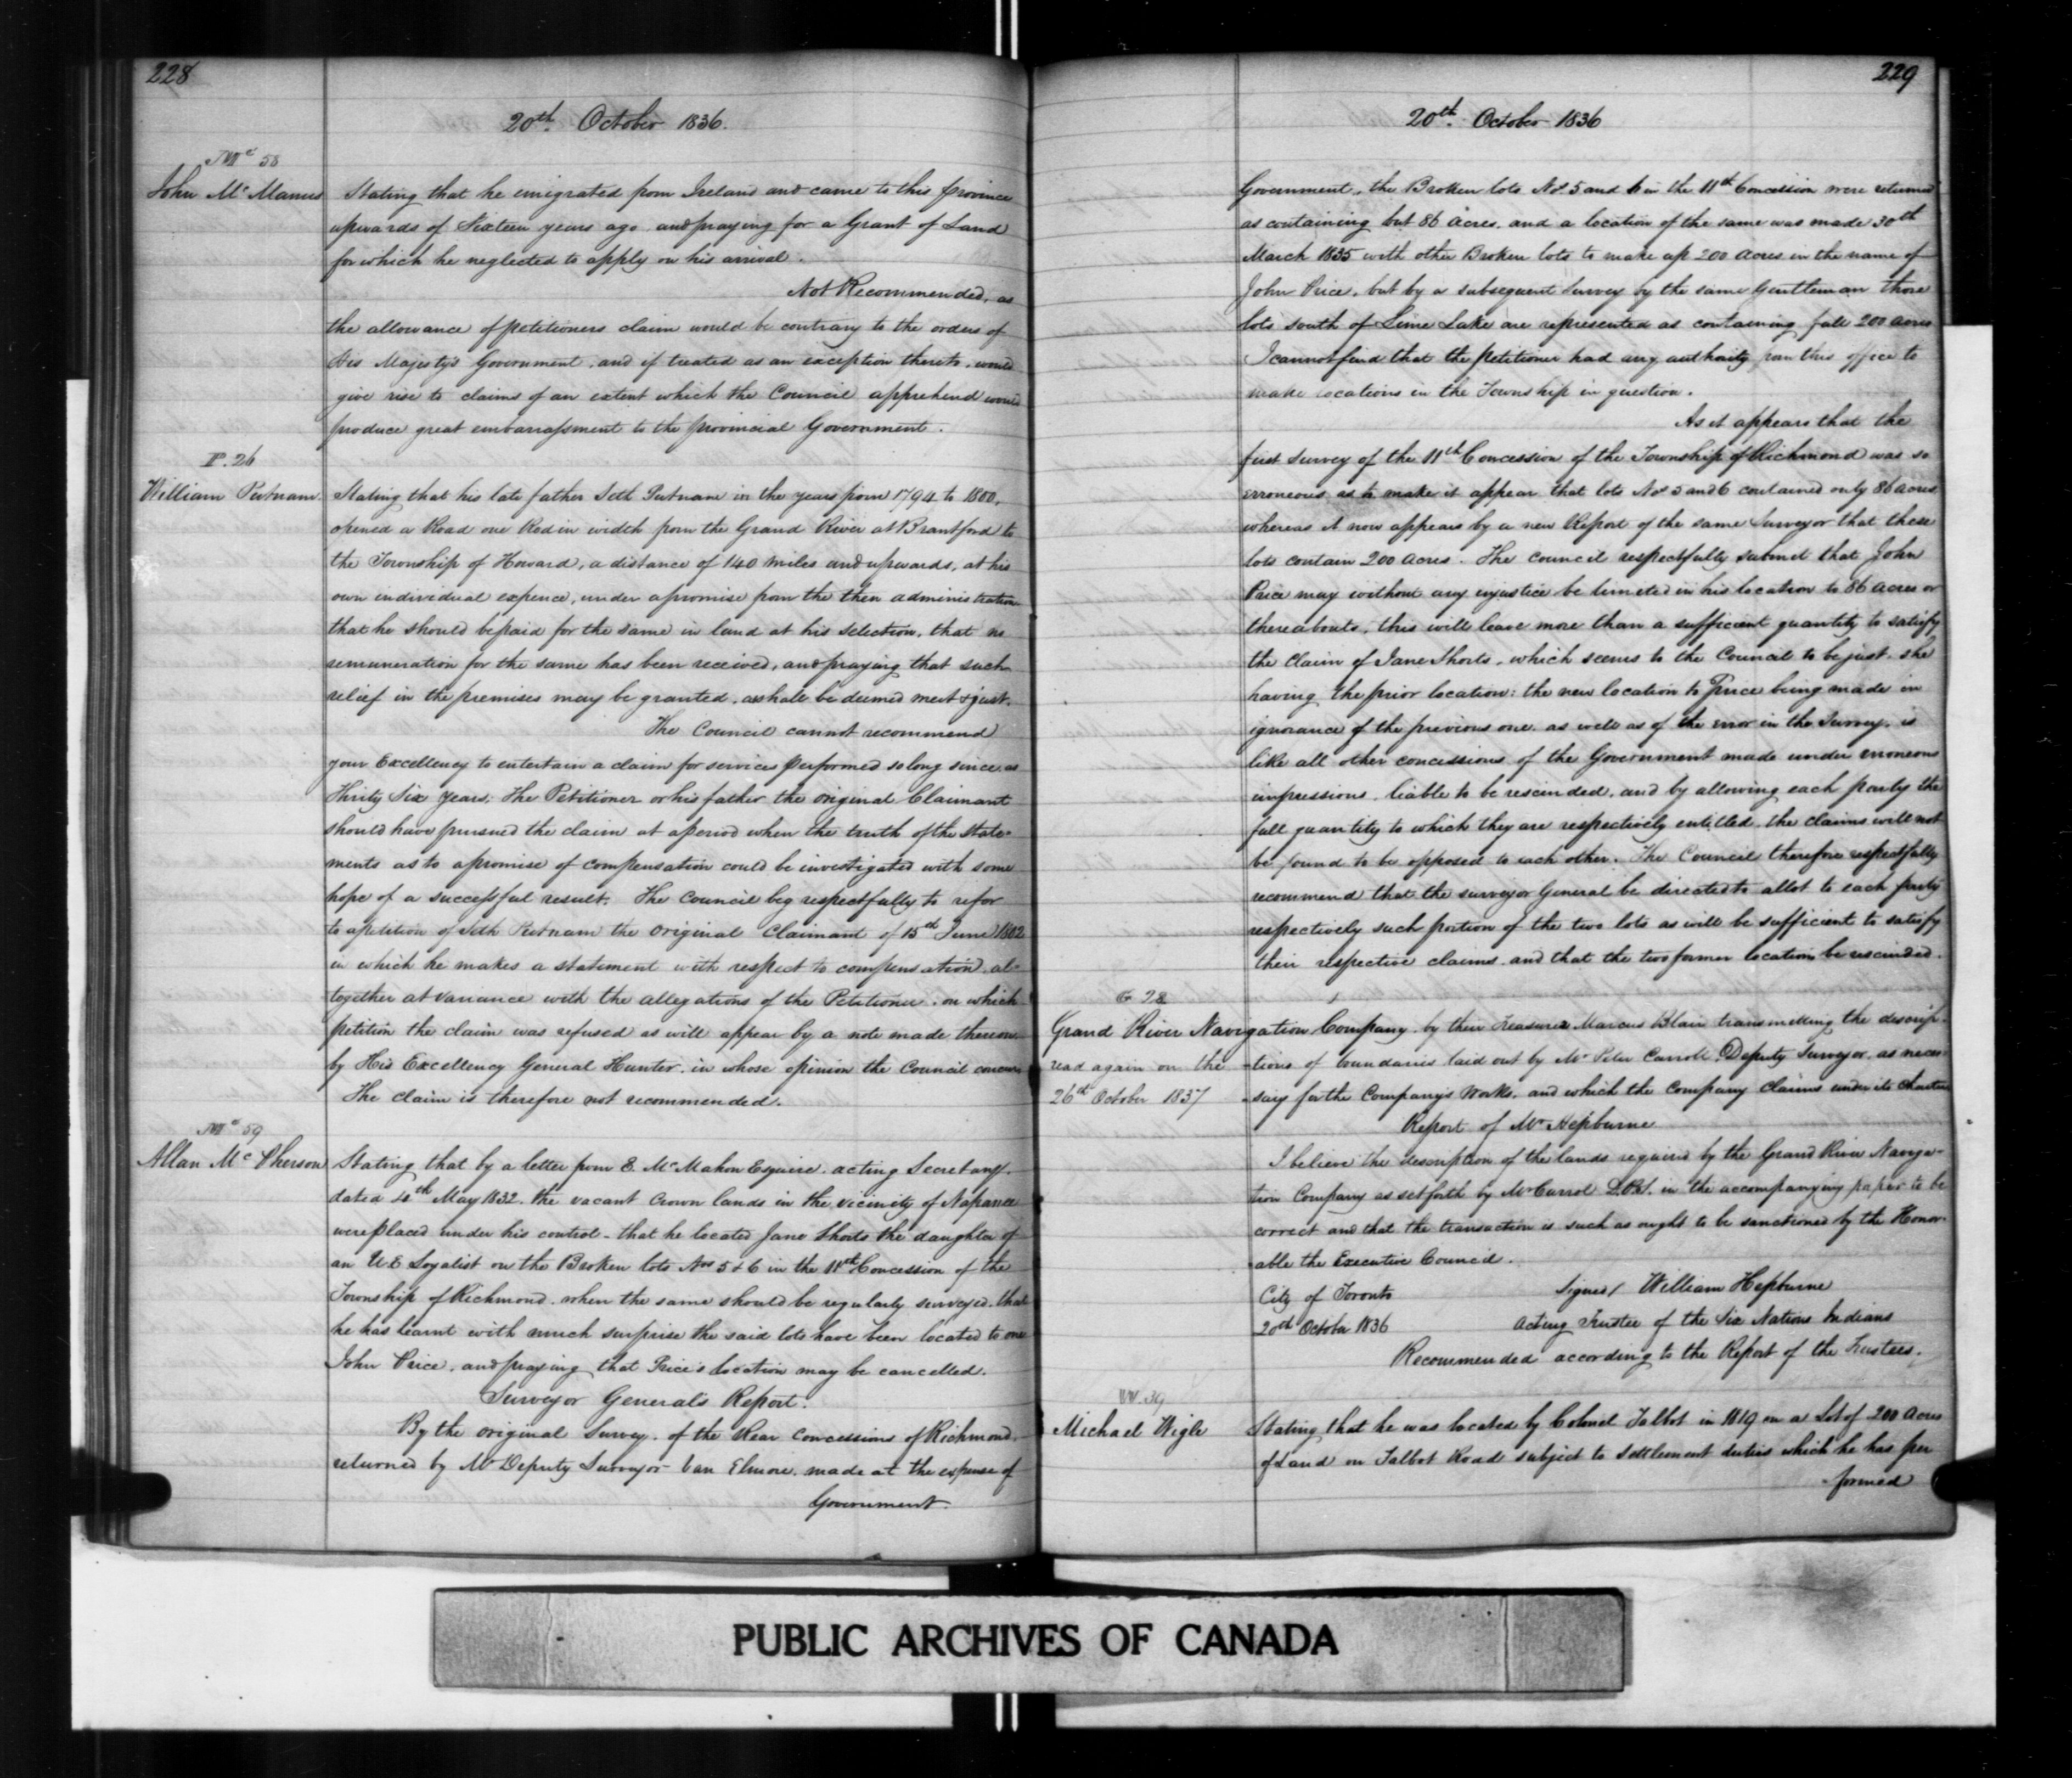 228
20th. October 1836.
Mc 58
John Mc Manus Stating that he emigrated from Ireland and came to this province
upwards of Sixteen years ago and praying for a Grant of Land
for which he neglected to apply on his arrival.
Not Recommended, as
the allowance of petitioners claim would be contrary to the orders of
His Majesty's Government, and if treated as an exception thereto, would
give rise to claims of an extent which the Council apprehend would
produce great embarrassment to the provincial Government.
P. 26
William Putnam Stating that his late father Seth Putnam in the years from 1794 to 1800,
opened a Road one Rod in width from the Grand River at Brantford to
the Township of Howard, a distance of 140 miles and upwards, at his
own individual expence, under a promise from the then administration
that he should be paid for the same in land at his selection, that no
remuneration for the same has been received, and praying that such
relief in the premises may be granted, as shall be deemed meet & just.
The Council cannot recommend
your Excellency to entertain a claim for services performed so long since as
Thirty Six years; The Petitioner or his father the original Claimant
should have pursued the claim at a period when the truth of the state-
ments as to a promise of compensation could be investigated with some
hope of a successful result. The Council beg respectfully to refer
to a petition of Seth Putnam the original Claimant of 15th June 1802
in which he makes a statement with respect to compensation al-
together at variance with the allegations of the Petitioner. on which
petition the claim was refused as will appear by a note made thereon
by His Excellency General Hunter. in whose opinion the Council concur
The claim is therefore not recommended.
Mc 59
Allan Mc Pherson Stating that by a letter from E. Mc Mahon Esquire. acting Secretary.
dated 4th May 1832. the vacant Crown lands in the vicinity of Napanee
were placed under his control - that he located Jane Shorts the daughter of
an U.E Loyalist on the Broken lots Nos 5 & 6 in the 11th Concession of the
Township of Richmond. when the same should be regularly surveyed. that
he has learnt with much surprise the said lots have been located to one
John Price. and praying that Price's location may be cancelled.
Surveyor General's Report.
By the original Survey. of the Rear Concessions of Richmond.
returned by Mr Deputy Surveyor Van Elmore. made at the expense of
Government.
229
20th. October 1836
Government, the Broken lots Nos 5 and 6 in the 11th Concession were returned
as containing but 86 acres. and a location of the same was made 30th
March 1835 with other Broken lots to make up 200 acres in the name of
John Price, but by a subsequent Survey by the same Gentleman those
lots south of Lime Lake are represented as containing full 200 acres
I cannot find that the petitioner had any authority from this office to
make locations in the Township in question.
As it appears that the
first Survey of the 11th Concession of the Township of Richmond was so
erroneous as to make it appear that lots Nos 5 and 6 contained only 86 acres
whereas it now appears by a new Report of the same Surveyor that these
lots contain 200 acres. The Council respectfully submit that John
Price may without any injustice be limited in his location to 86 acres or
thereabouts, this will leave more than a sufficient quantity to satisfy
the claim of Jane Shorts, which seems to the Council to be just. she
having the prior location: the new location to Price being made in
ignorance of the previous one. as well as of the error in the Survey. is
like all other concessions of the Government made under erroneous
impressions, liable to be rescinded, and by allowing each party the
full quantity to which they are respectively entitled. the claims will not
be found to be opposed to each other. The Council therefore respectfully
recommend that the surveyor General be directed to allot to each party
respectively such portion of the two lots as will be sufficient to satisfy
their respective claims. and that the two former locations be rescinded.
G 28
Grand River Navigation Company. by their Treasurer Marcus Blair transmitting the descrip-
read again on the -tions of boundaries laid out by Mr Peter Carroll Deputy Surveyor. as neces-
26th October 1837 -sary for the Company's Works. and which the Company claims under its Charter
Report of Mr Hepburne
I believe the description of the lands required by the Grand River Naviga-
tion Company as set forth by Mr Carrol D.P.S. in the accompanying paper to be
correct and that the transaction is such as ought to be sanctioned by the Honor-
able the Executive Council.
City of Toronto Signed/ William Hepburne
20th October 1836 Acting Trustee of the Six Nations Indians
Recommended according to the Report of the Trustees.
W 39
Michael Wigle Stating that he was located by Colonel Talbot in 1819 on a Lot of 200 acres
of Land on Talbot Road subject to Settlement duties which he has per
-formed
PUBLIC ARCHIVES OF CANADA